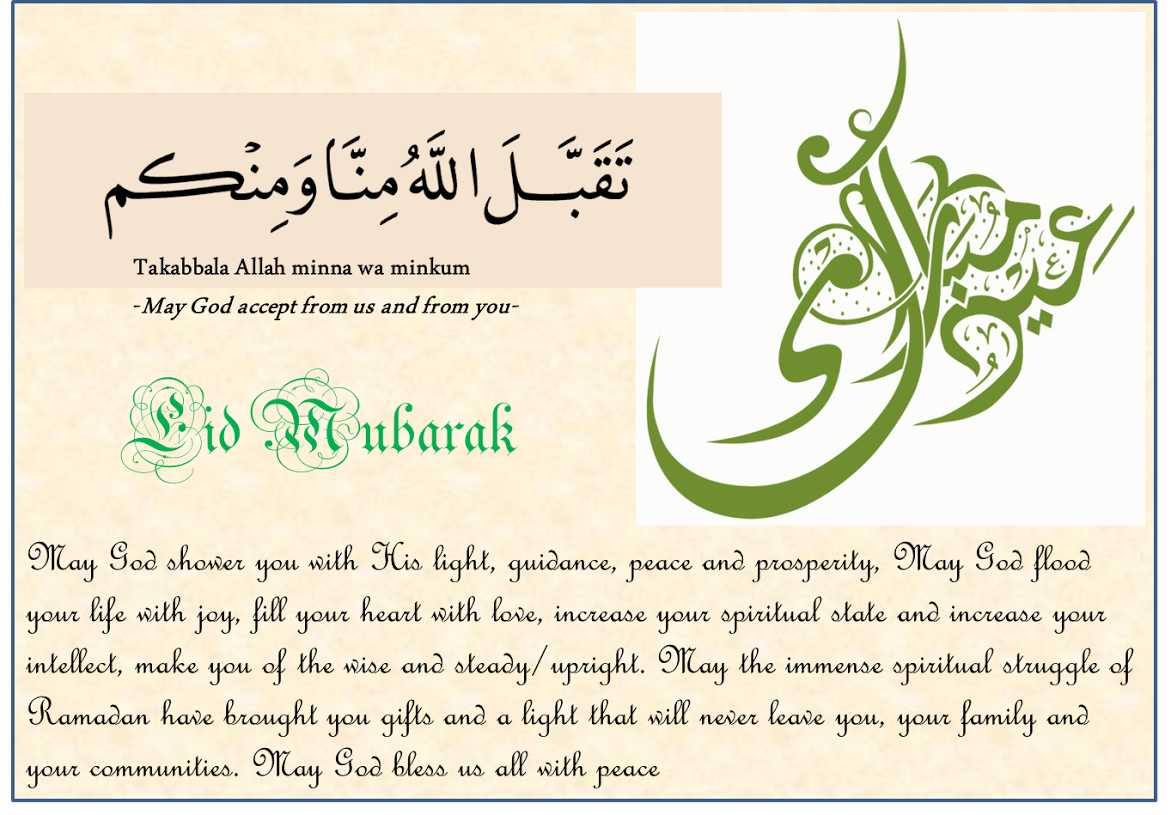 تَقَبَّلَ اللَّهُ مِنَّا وَمِنْكُم
Takabbala Allah minna wa minkum
-May God accept from us and from you-
عيد مبارك
Eid Mubarak
May God shower you with His light, guidance, peace and prosperity, May God flood
your life with joy, fill your heart with love, increase your spiritual state and increase your
intellect, make you of the wise and steady/upright. May the immense spiritual struggle of
Ramadan have brought you gifts and a light that will never leave you, your family and
your communities. May God bless us all with peace